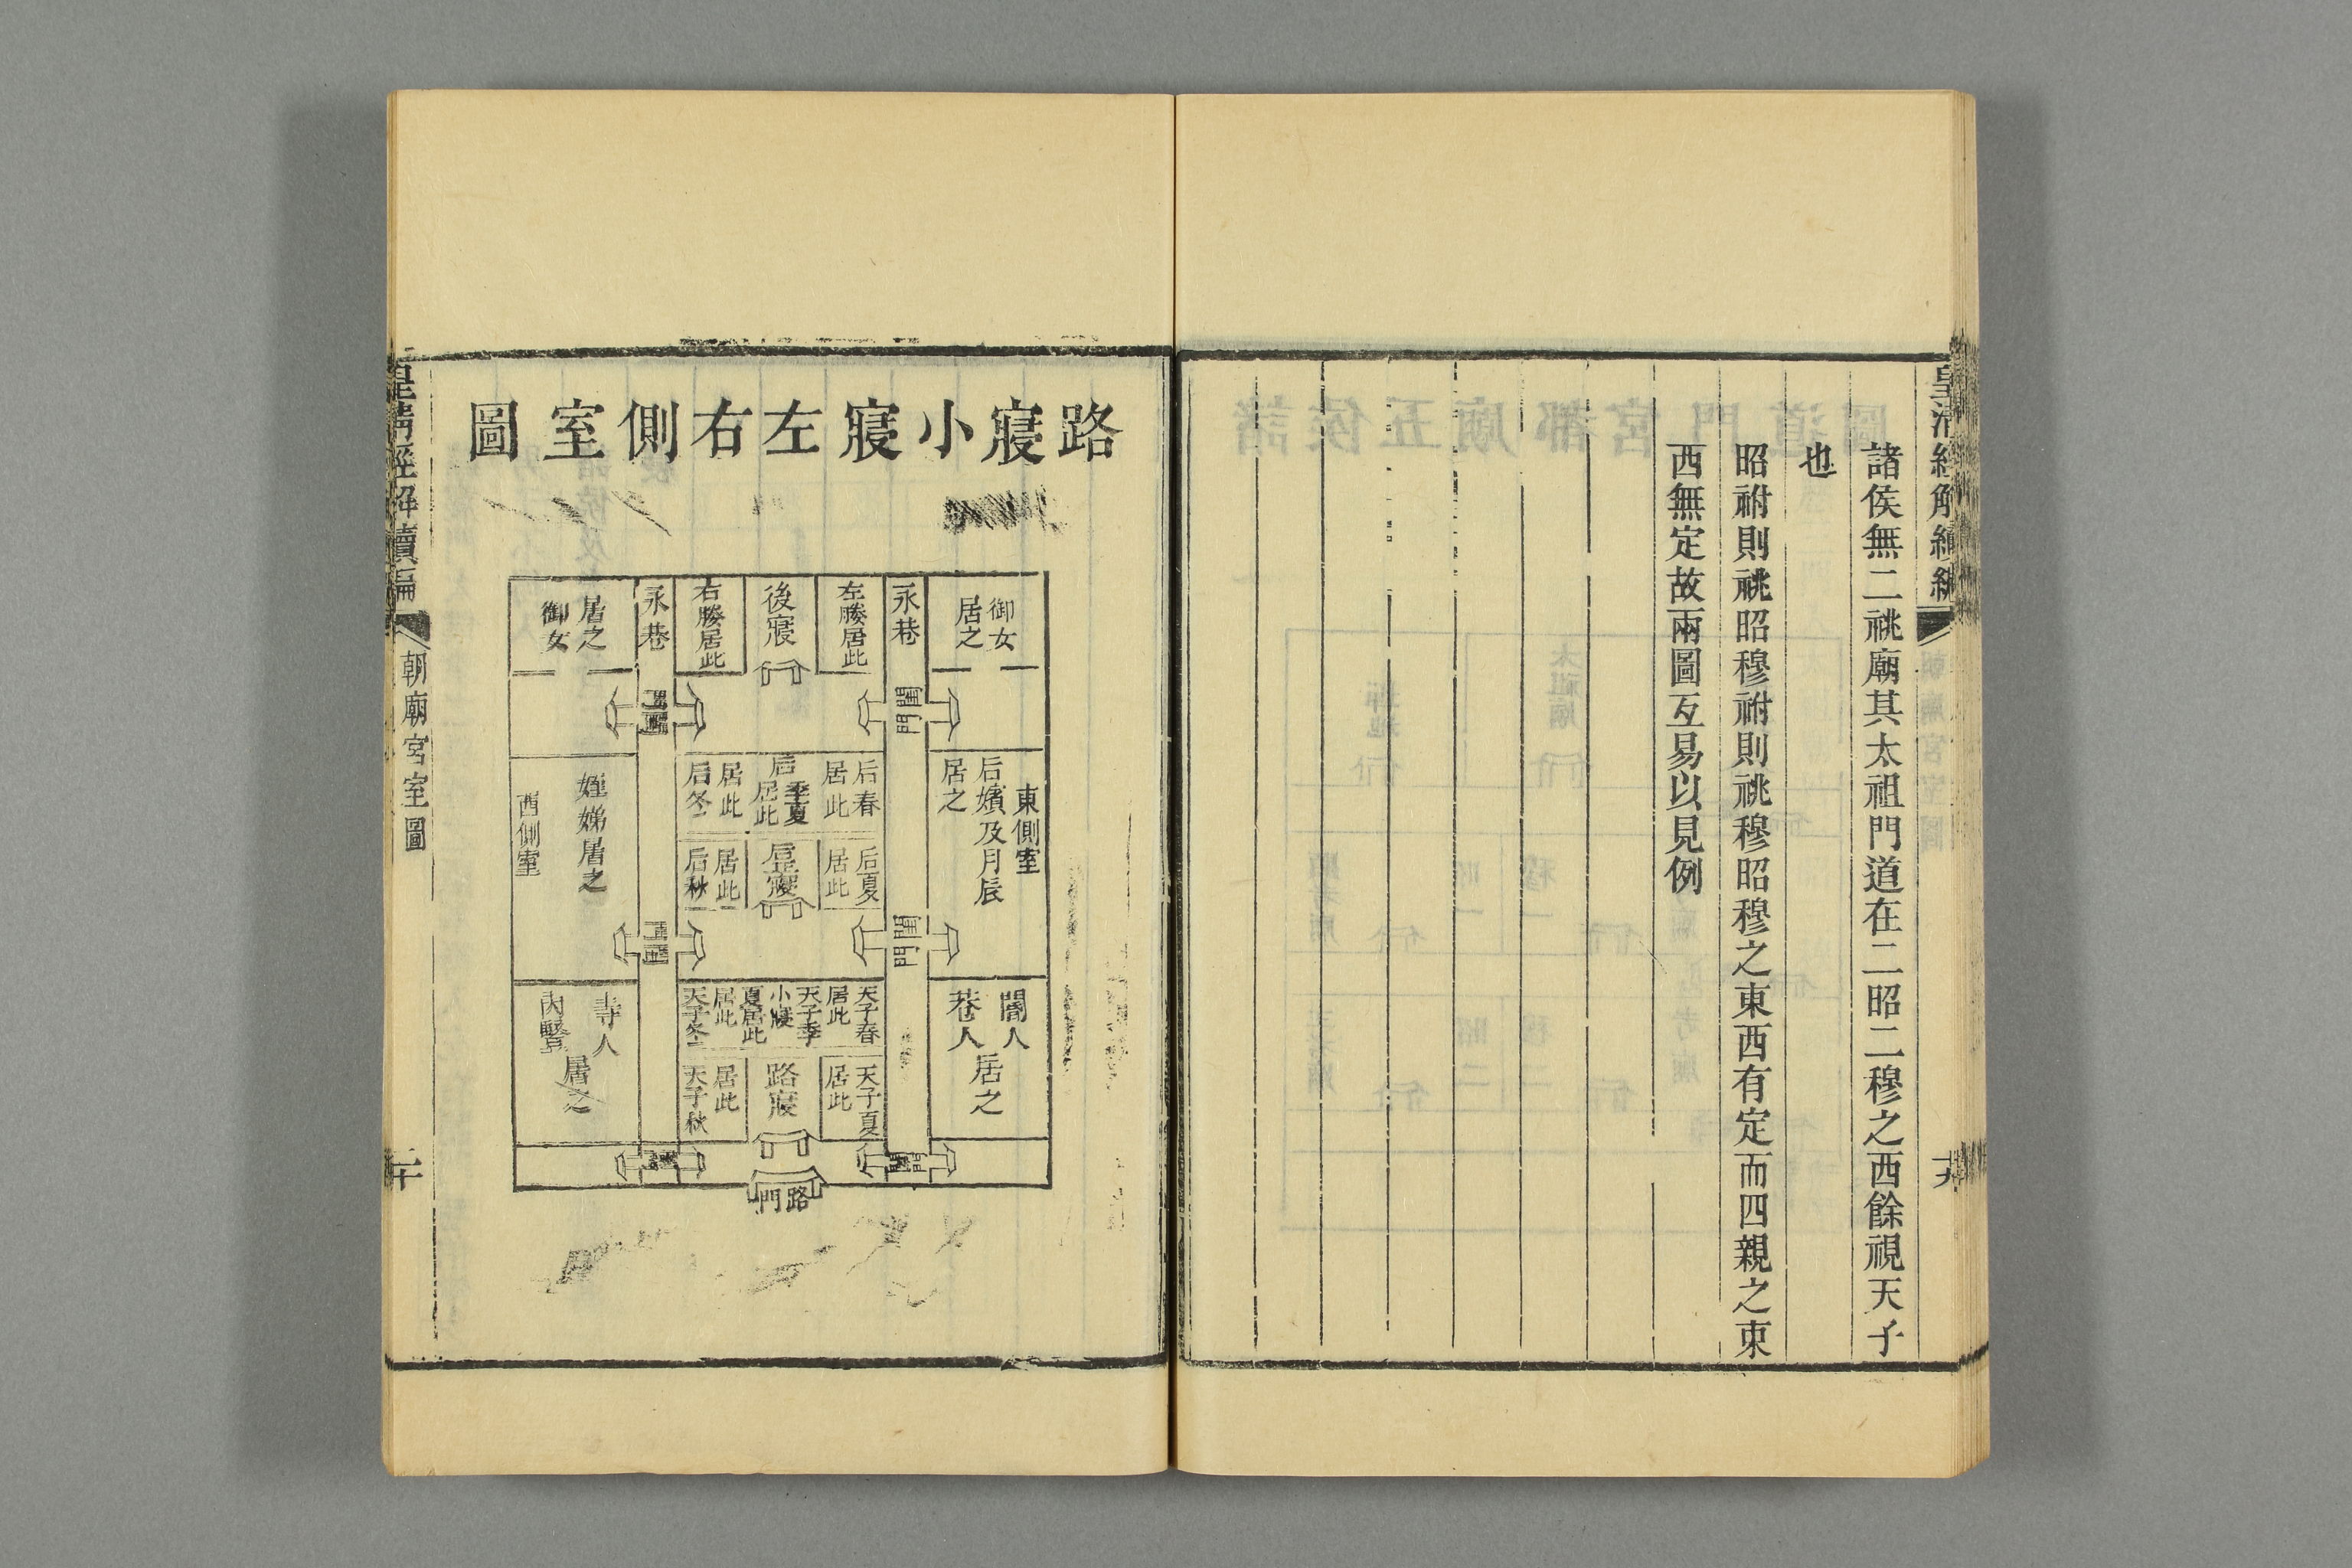 諸侯無二祧廟其太祖門道在二昭二穆之西餘視天子
也
昭祔則祧昭穆祔則祧穆昭穆之東西有定而四親之東
西無定故兩圖互易以見例
十九
路寢小寢左右側室圖
御女
居之
永巷
左媵居此
後寢
右媵居此
永巷
居之
御女
闈門
東側室
后嬪及月辰
居之
后春
居此
后季夏
居此
居此
后冬
后夏
居此
后正寢
居此
后秋
姪娣居之
西側室
闈門
閽人
巷人
居之
天子春
居此
天子季
小寢
夏居此
居此
天子冬
天子夏
居此
路寢
居此
天子秋
寺人
內豎
居之
路門
皇清經解續編
朝廟宮室圖
二十